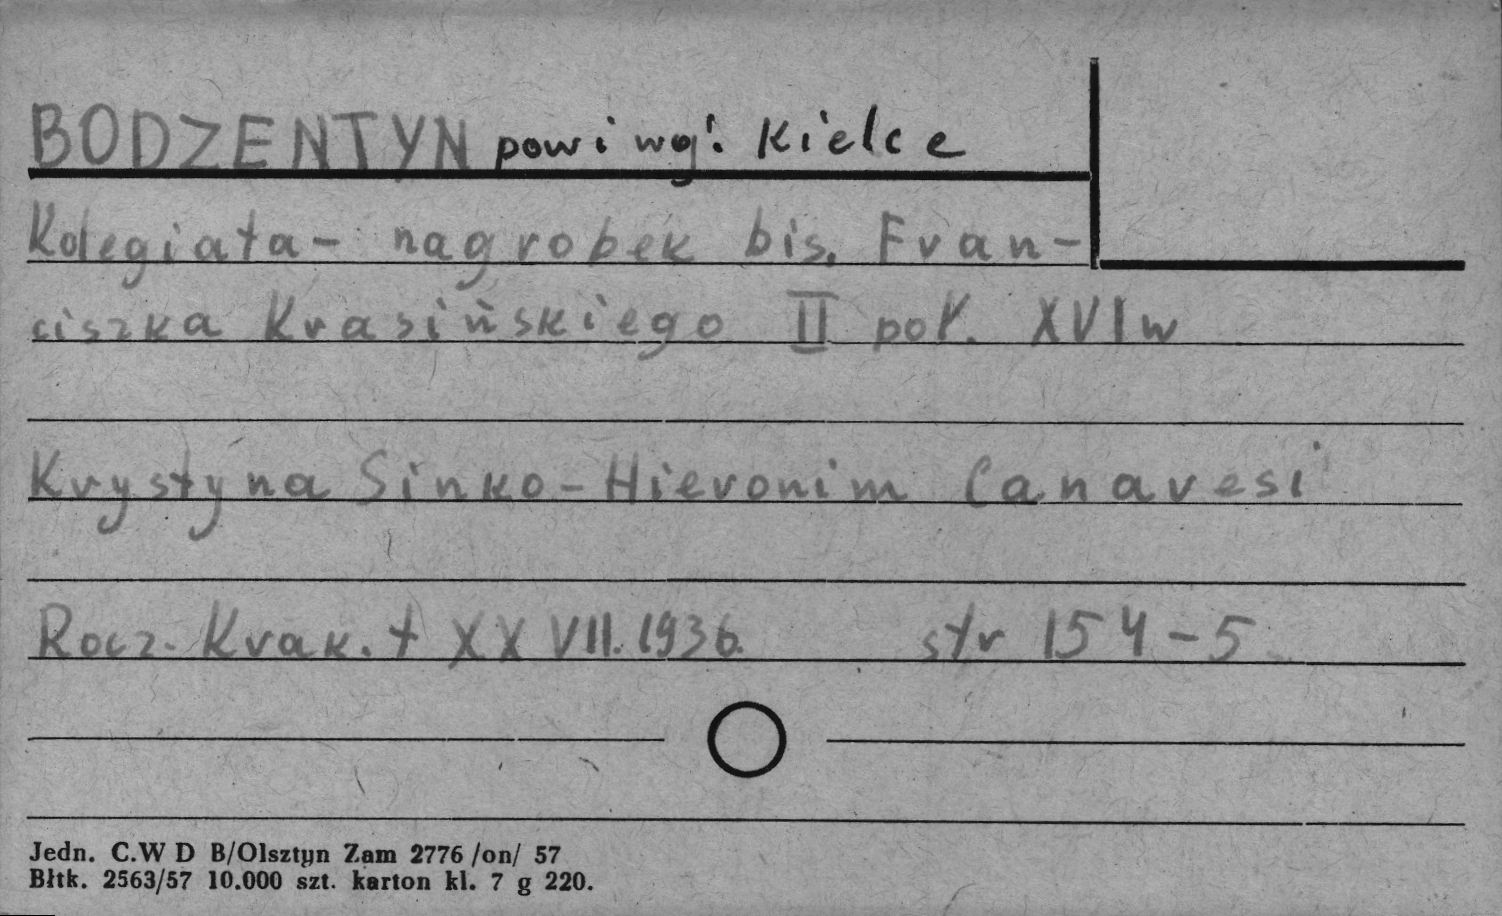 BODZENTYN pow i woj: Kielce
Kolegiata- nagrobek bis. Fran-
ciszka Krasińskiego II poł. XVI w
Krystyna Sinko - Hieronim Canavesi
Rocz. Krak. t XXVII. 1936. str 154-5
Jedn. C.W D B/Olsztyn Zam 2776 /on/ 57
Błtk. 2563/57 10.000 szt. karton kl. 7 g 220.